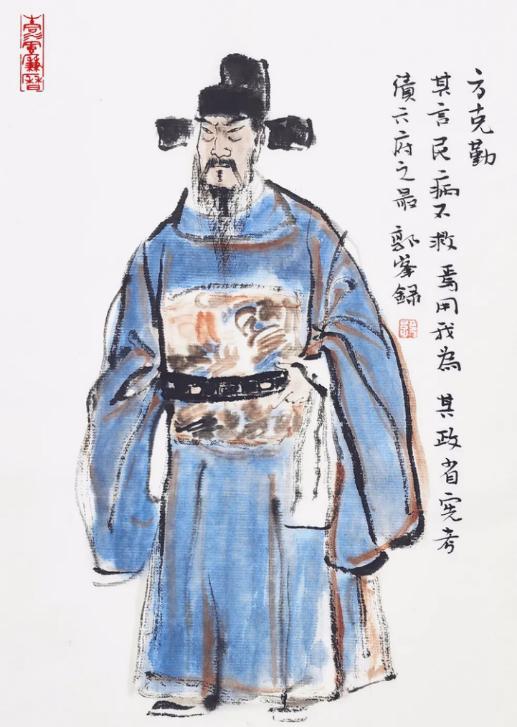 方克勤
其言民病不救焉用我為其政省憲考
績六府之最 郭峯録